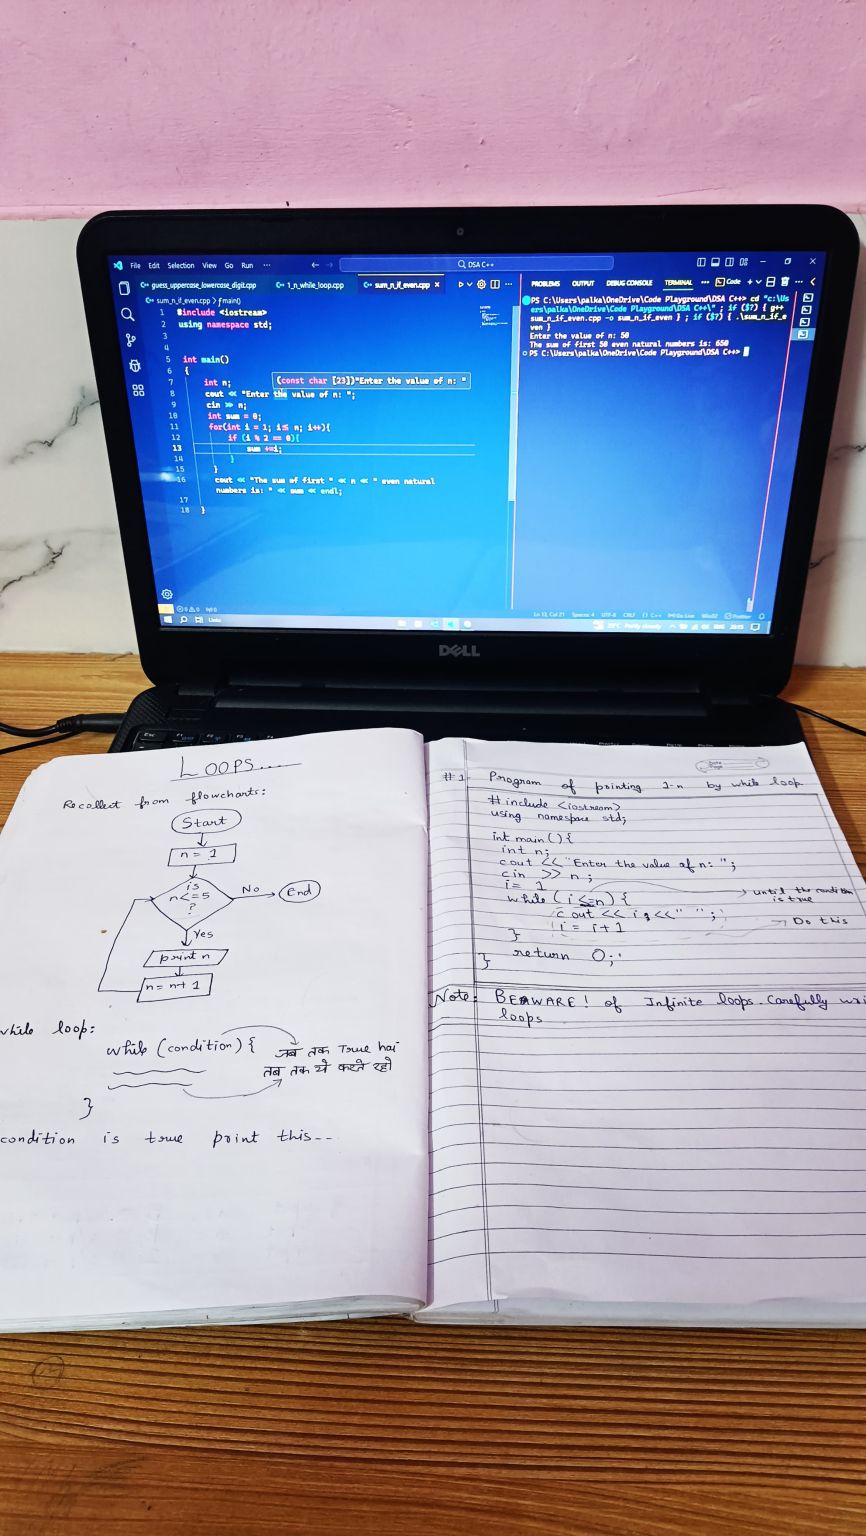 File Edit Selection View Go Run ...
DSA C++
guess_uppercase_lowercase_digit.cpp 1_n_while_loop.cpp sum_n_if_even.cpp
sum_n_if_even.cpp > main()
1 #include <iostream>
2 using namespace std;
3
4
5 int main()
6 {
7 int n;
(const char [23])"Enter the value of n: "
8 cout << "Enter the value of n: ";
9 cin >> n;
10 int sum = 0;
11 for(int i = 1; i≤ n; i++){
12 if (i % 2 == 0){
13 sum +=i;
14 }
15 }
16 cout << "The sum of first " << n << " even natural
numbers is: " << sum << endl;
17
18 }
PROBLEMS OUTPUT DEBUG CONSOLE TERMINAL ... Code
PS C:\Users\palka\OneDrive\Code Playground\DSA C++> cd "c:\Us
ers\palka\OneDrive\Code Playground\DSA C++\" ; if ($?) { g++
sum_n_if_even.cpp -o sum_n_if_even } ; if ($?) { .\sum_n_if_e
ven }
Enter the value of n: 50
The sum of first 50 even natural numbers is: 650
PS C:\Users\palka\OneDrive\Code Playground\DSA C++>
Ln 13, Col 21 Spaces: 4 UTF-8 CRLF {} C++ Go Live Win32 Prettier
Links
Partly cloudy
DELL
Esc F1 F2 F3 F4
LOOPS....
Recollect from flowcharts:
Start
n = 1
is
n<=5
?
No
End
Yes
print n
n = n+1
while loop:
while (condition) {
जब तक True hai
तब तक ये करते रहो
}
condition is true print this--
Date
Page
#1- Program of printing 1-n by while loop
#include <iostream>
using namespace std;
int main() {
int n;
cout << "Enter the value of n: ";
cin >> n;
i = 1
while (i <=n) {
until the condition
is true
cout << i << " ";
Do this
i = i+1
}
return 0;
}
Note: BEAWARE! of Infinite loops. Carefully
loops